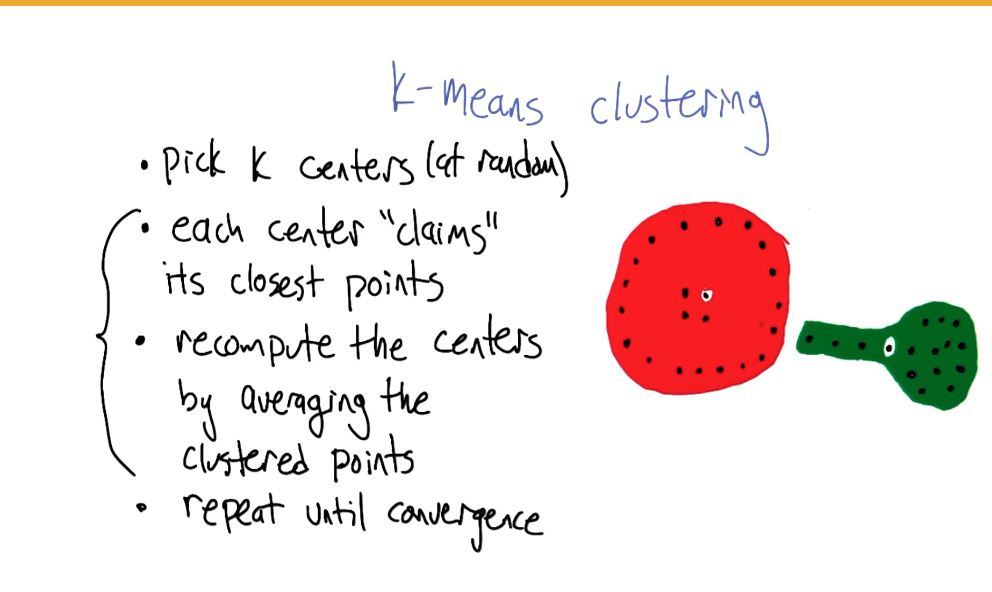 k-means clustering
• pick k centers (at random)
• each center "claims"
its closest points
• recompute the centers
by averaging the
clustered points
• repeat until convergence